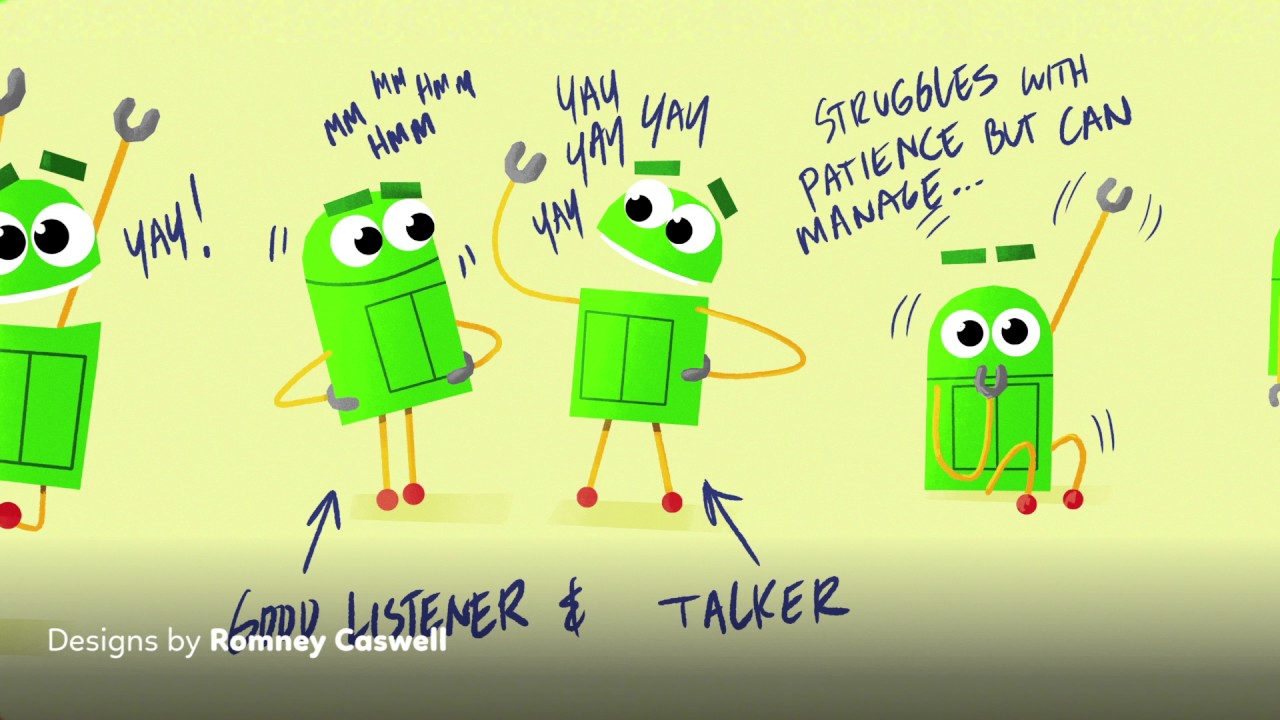 YAY!
MM HMM
MM
HMM
YAY
YAY
YAY
YAY
STRUGGLES WITH
PATIENCE BUT CAN
MANAGE...
GOOD LISTENER & TALKER
Designs by Romney Caswell